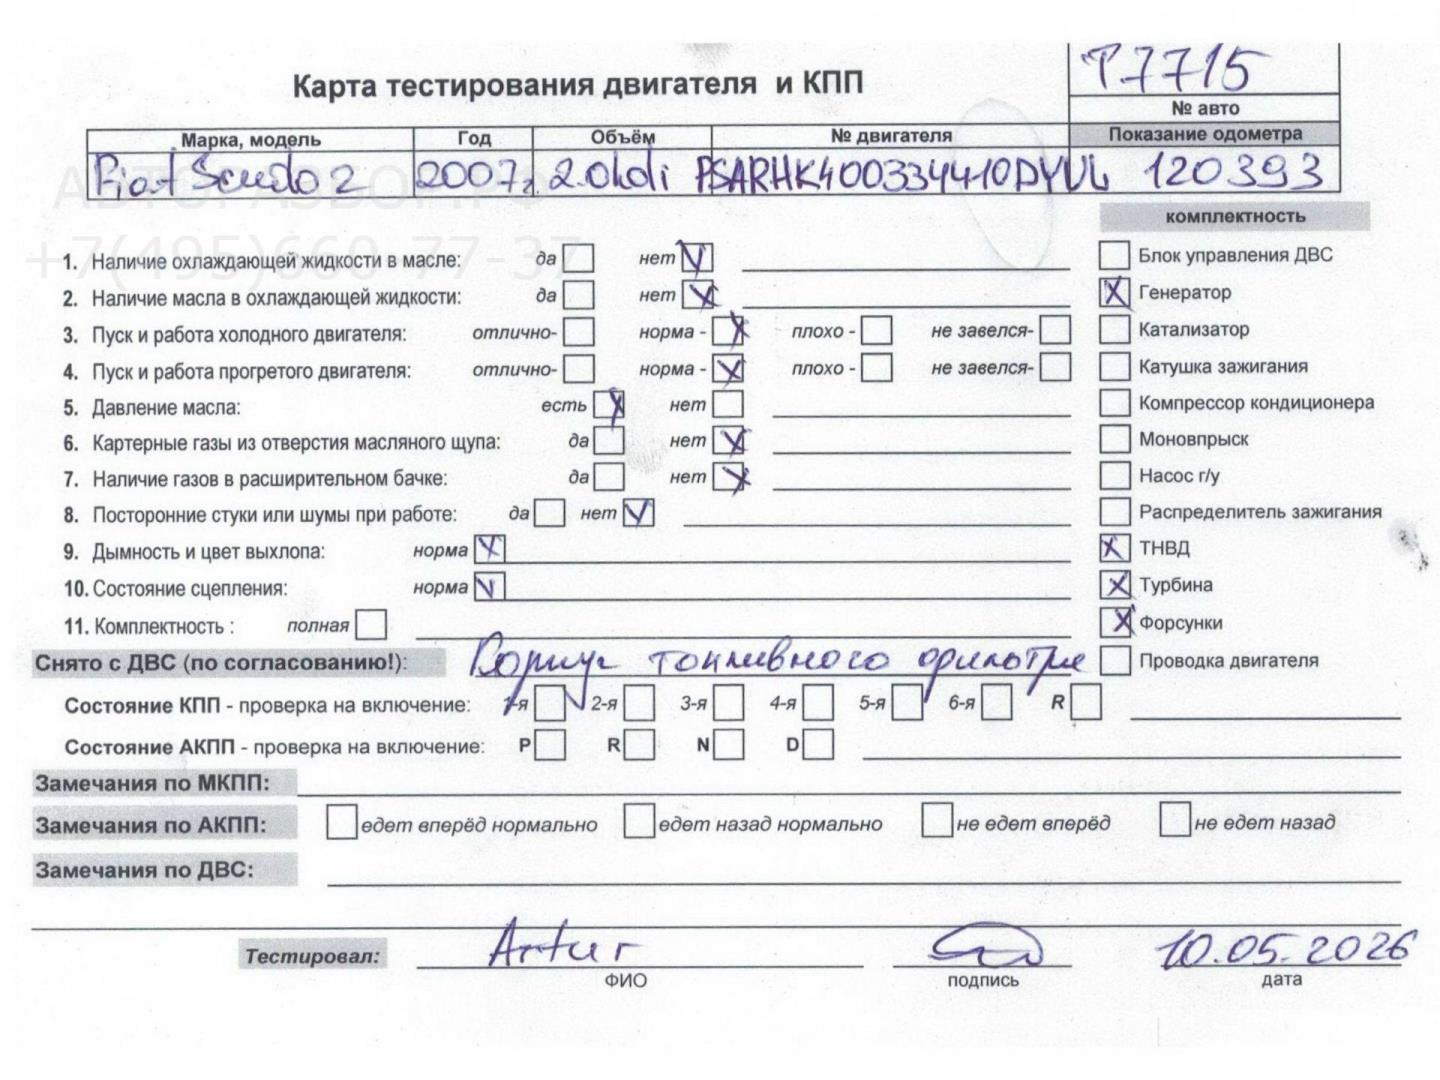 Карта тестирования двигателя и КПП
T7715
№ авто
Марка, модель Год Объём № двигателя Показание одометра
Fiat Scudo 2 2007г 2.0hdi PSARHK400334410DYUL 120393
АВТОРАЗБОР.РФ
+7(495)660-77-37
комплектность
1. Наличие охлаждающей жидкости в масле: да нет V Блок управления ДВС
2. Наличие масла в охлаждающей жидкости: да нет X X Генератор
3. Пуск и работа холодного двигателя: отлично- норма - X плохо - не завелся- Катализатор
4. Пуск и работа прогретого двигателя: отлично- норма - X плохо - не завелся- Катушка зажигания
5. Давление масла: есть X нет Компрессор кондиционера
6. Картерные газы из отверстия масляного щупа: да нет X Моновпрыск
7. Наличие газов в расширительном бачке: да нет X Насос г/у
8. Посторонние стуки или шумы при работе: да нет V Распределитель зажигания
9. Дымность и цвет выхлопа: норма X X ТНВД
10. Состояние сцепления: норма V X Турбина
11. Комплектность : полная X Форсунки
Снято с ДВС (по согласованию!): Корпус топливного фильтра Проводка двигателя
Состояние КПП - проверка на включение: 1-я 2-я 3-я 4-я 5-я 6-я R
Состояние АКПП - проверка на включение: P R N D
Замечания по МКПП:
Замечания по АКПП: едет вперёд нормально едет назад нормально не едет вперёд не едет назад
Замечания по ДВС:
Тестировал: Artur 10.05.2026
ФИО подпись дата